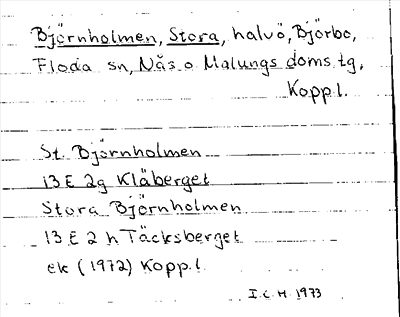 Björnholmen, Stora, halvö, Björbo,
Floda sn, Nås o Malungs doms.tg,
Koppl.
St. Björnholmen
13 E 2g Kläberget
Stora Björnholmen
13 E 2 h Täcksberget
ek (1972) Koppl.
I.C.H. 1973